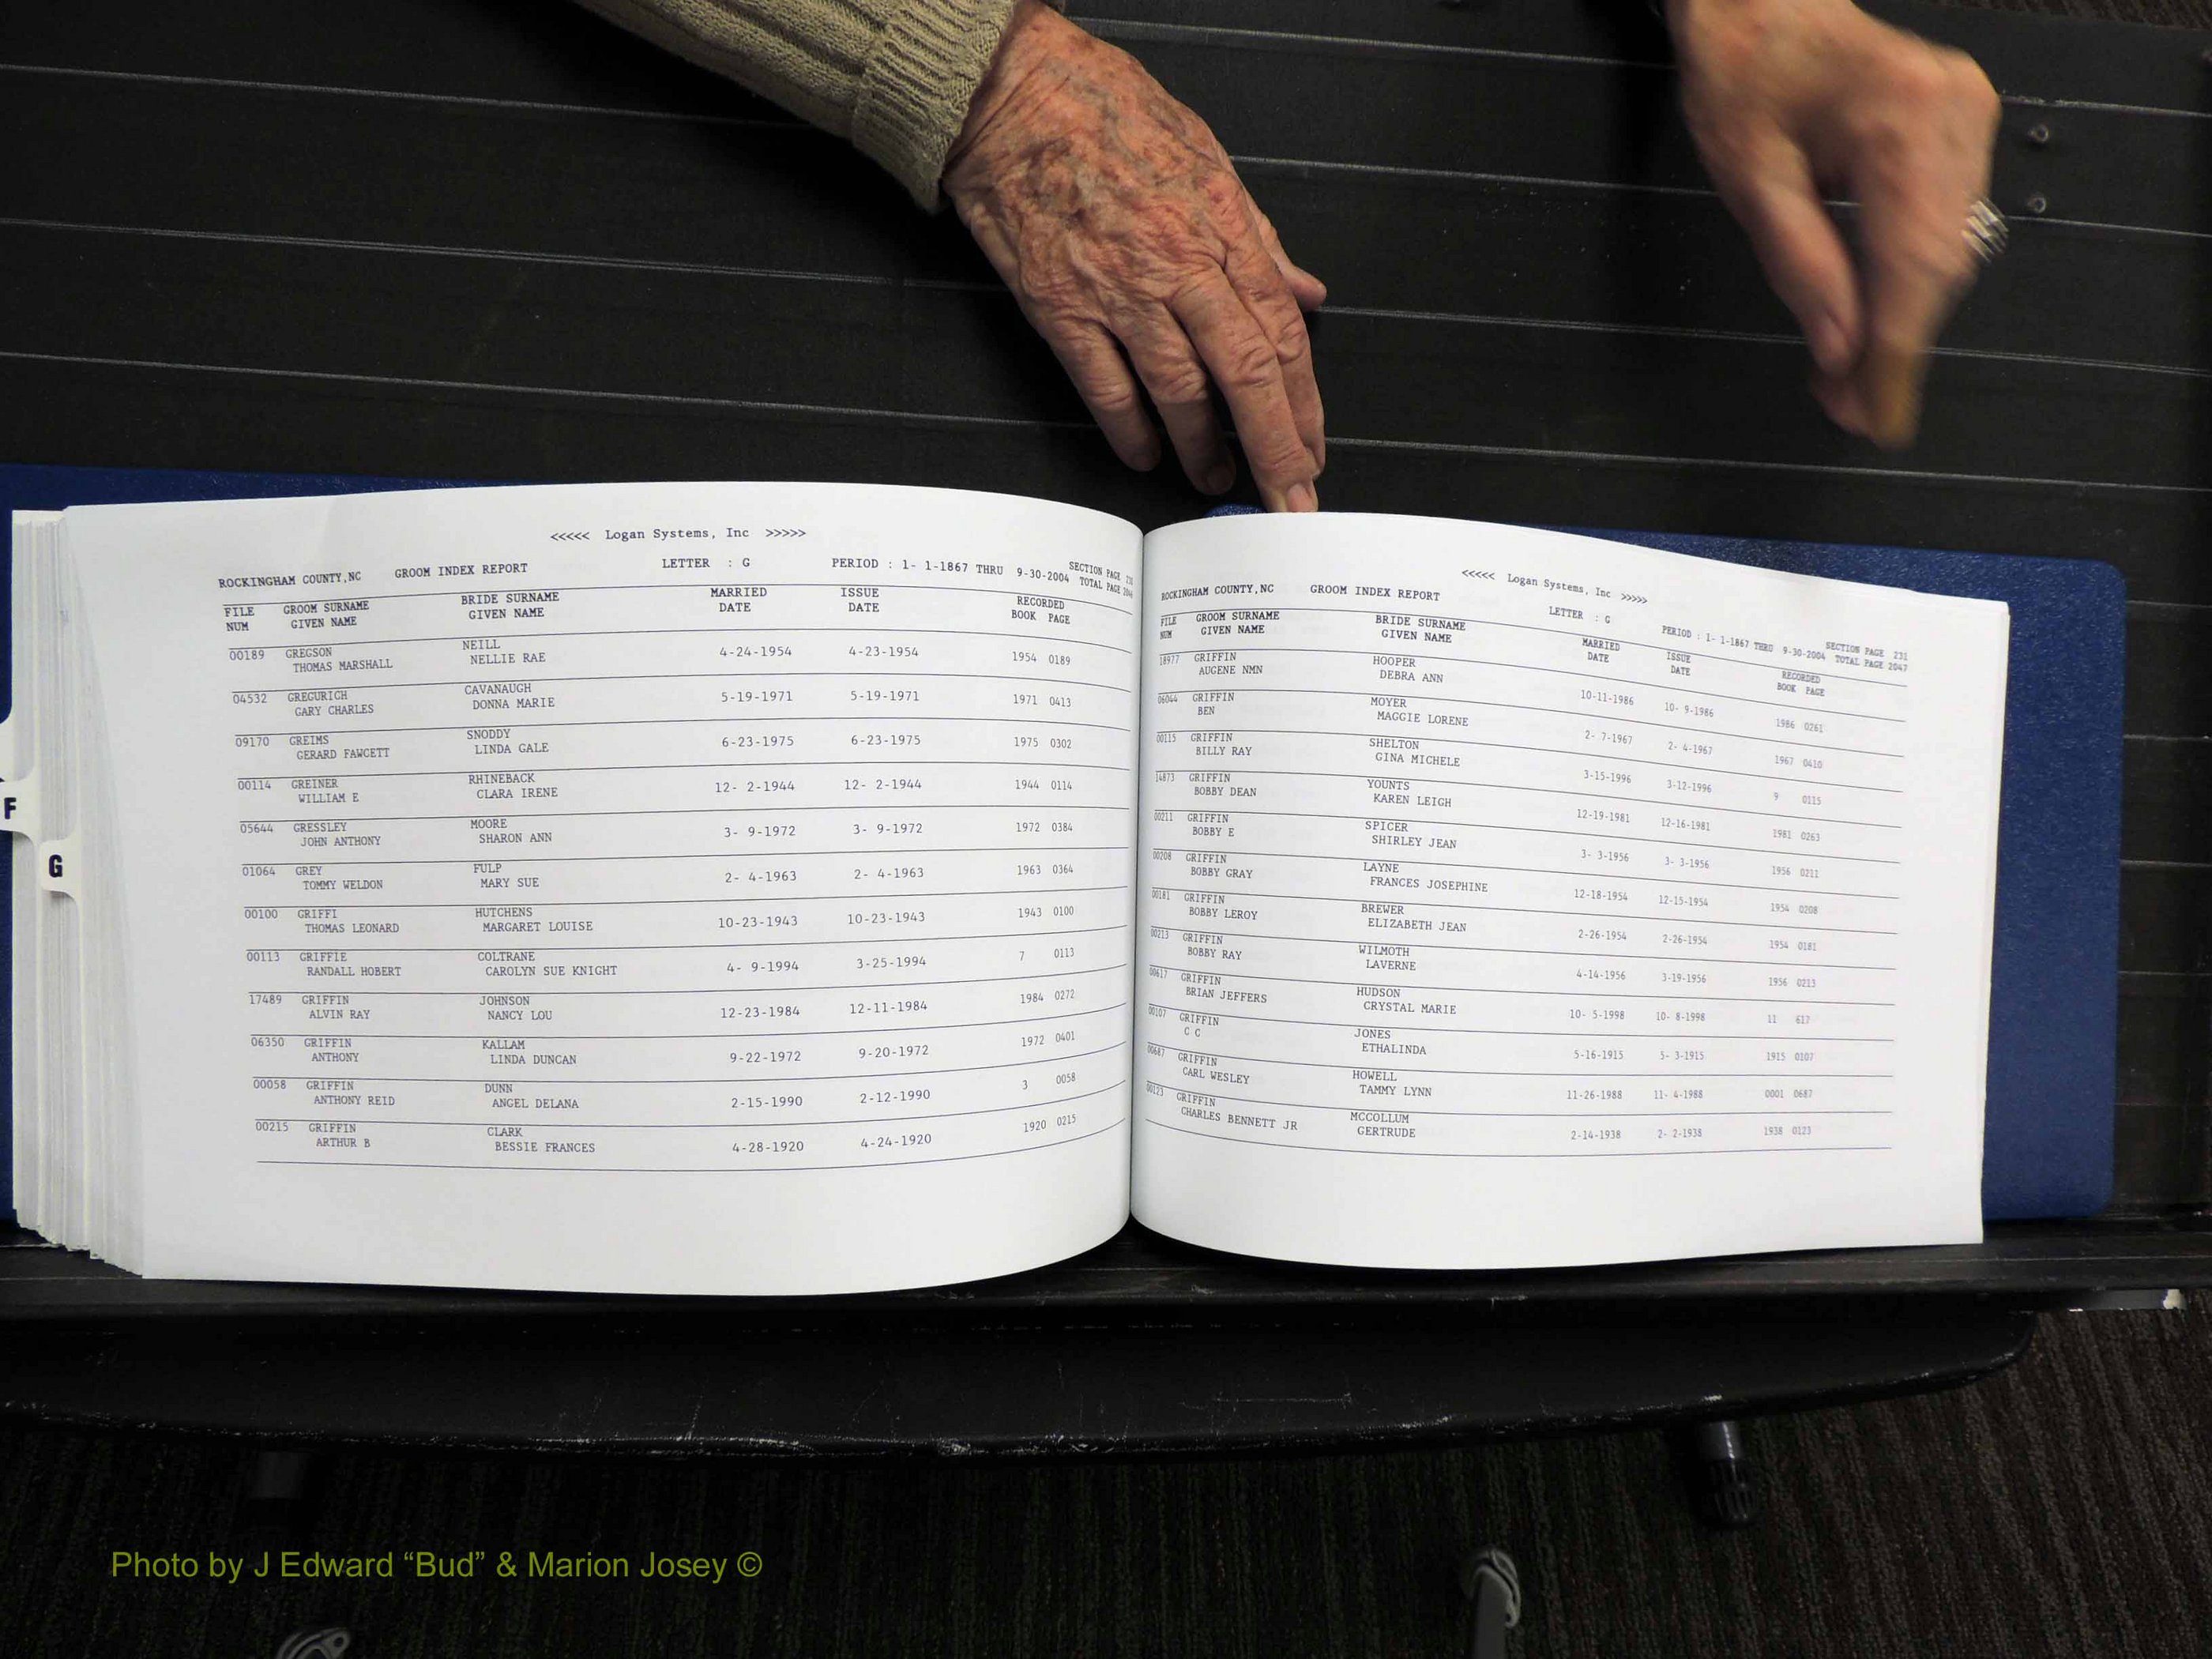 <<<<< Logan Systems, Inc >>>>>
ROCKINGHAM COUNTY,NC GROOM INDEX REPORT LETTER : G PERIOD : 1- 1-1867 THRU 9-30-2004 SECTION PAGE
TOTAL PAGE
FILE GROOM SURNAME BRIDE SURNAME MARRIED ISSUE RECORDED
NUM GIVEN NAME GIVEN NAME DATE DATE BOOK PAGE
00189 GREGSON NEILL 4-24-1954 4-23-1954 1954 0189
THOMAS MARSHALL NELLIE RAE
04532 GREGURICH CAVANAUGH 5-19-1971 5-19-1971 1971 0413
GARY CHARLES DONNA MARIE
09170 GREIMS SNODDY 6-23-1975 6-23-1975 1975 0302
GERARD FAWCETT LINDA GALE
00114 GREINER RHINEBACK 12- 2-1944 12- 2-1944 1944 0114
WILLIAM E CLARA IRENE
05644 GRESSLEY MOORE 3- 9-1972 3- 9-1972 1972 0384
JOHN ANTHONY SHARON ANN
01064 GREY FULP 2- 4-1963 2- 4-1963 1963 0364
TOMMY WELDON MARY SUE
00100 GRIFFI HUTCHENS 10-23-1943 10-23-1943 1943 0100
THOMAS LEONARD MARGARET LOUISE
00113 GRIFFIE COLTRANE 4- 9-1994 3-25-1994 7 0113
RANDALL HOBERT CAROLYN SUE KNIGHT
17489 GRIFFIN JOHNSON 12-23-1984 12-11-1984 1984 0272
ALVIN RAY NANCY LOU
06350 GRIFFIN KALLAM 9-22-1972 9-20-1972 1972 0401
ANTHONY LINDA DUNCAN
00058 GRIFFIN DUNN 2-15-1990 2-12-1990 3 0058
ANTHONY REID ANGEL DELANA
00215 GRIFFIN CLARK 4-28-1920 4-24-1920 1920 0215
ARTHUR B BESSIE FRANCES
F
G
<<<<< Logan Systems, Inc >>>>>
ROCKINGHAM COUNTY,NC GROOM INDEX REPORT LETTER : G PERIOD : 1- 1-1867 THRU 9-30-2004 SECTION PAGE 231
TOTAL PAGE 2047
FILE GROOM SURNAME BRIDE SURNAME MARRIED ISSUE RECORDED
NUM GIVEN NAME GIVEN NAME DATE DATE BOOK PAGE
18977 GRIFFIN HOOPER 10-11-1986 10- 9-1986 1986 0261
AUGENE NMN DEBRA ANN
06044 GRIFFIN MOYER 2- 7-1967 2- 4-1967 1967 0410
BEN MAGGIE LORENE
00115 GRIFFIN SHELTON 3-15-1996 3-12-1996 9 0115
BILLY RAY GINA MICHELE
14873 GRIFFIN YOUNTS 12-19-1981 12-16-1981 1981 0263
BOBBY DEAN KAREN LEIGH
00211 GRIFFIN SPICER 3- 3-1956 3- 3-1956 1956 0211
BOBBY E SHIRLEY JEAN
00208 GRIFFIN LAYNE 12-18-1954 12-15-1954 1954 0208
BOBBY GRAY FRANCES JOSEPHINE
00181 GRIFFIN BREWER 2-26-1954 2-26-1954 1954 0181
BOBBY LEROY ELIZABETH JEAN
00213 GRIFFIN WILMOTH 4-14-1956 3-19-1956 1956 0213
BOBBY RAY LAVERNE
00617 GRIFFIN HUDSON 10- 5-1998 10- 8-1998 11 617
BRIAN JEFFERS CRYSTAL MARIE
00107 GRIFFIN JONES 5-16-1915 5- 3-1915 1915 0107
C C ETHALINDA
00687 GRIFFIN HOWELL 11-26-1988 11- 4-1988 0001 0687
CARL WESLEY TAMMY LYNN
00123 GRIFFIN MCCOLLUM 2-14-1938 2- 2-1938 1938 0123
CHARLES BENNETT JR GERTRUDE
Photo by J Edward “Bud” & Marion Josey ©